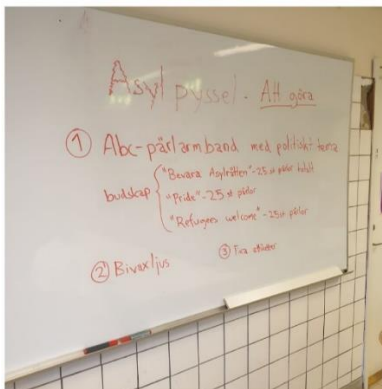 Asylpyssel - Att göra
① Abc-pärlarmband med politiskt tema
budskap
"Bevara Asylrätten" - 25 st pärlor totalt
"Pride" - 25 st pärlor
"Refugees welcome" - 25 st pärlor
② Bivaxljus
③ Fixa etiketter